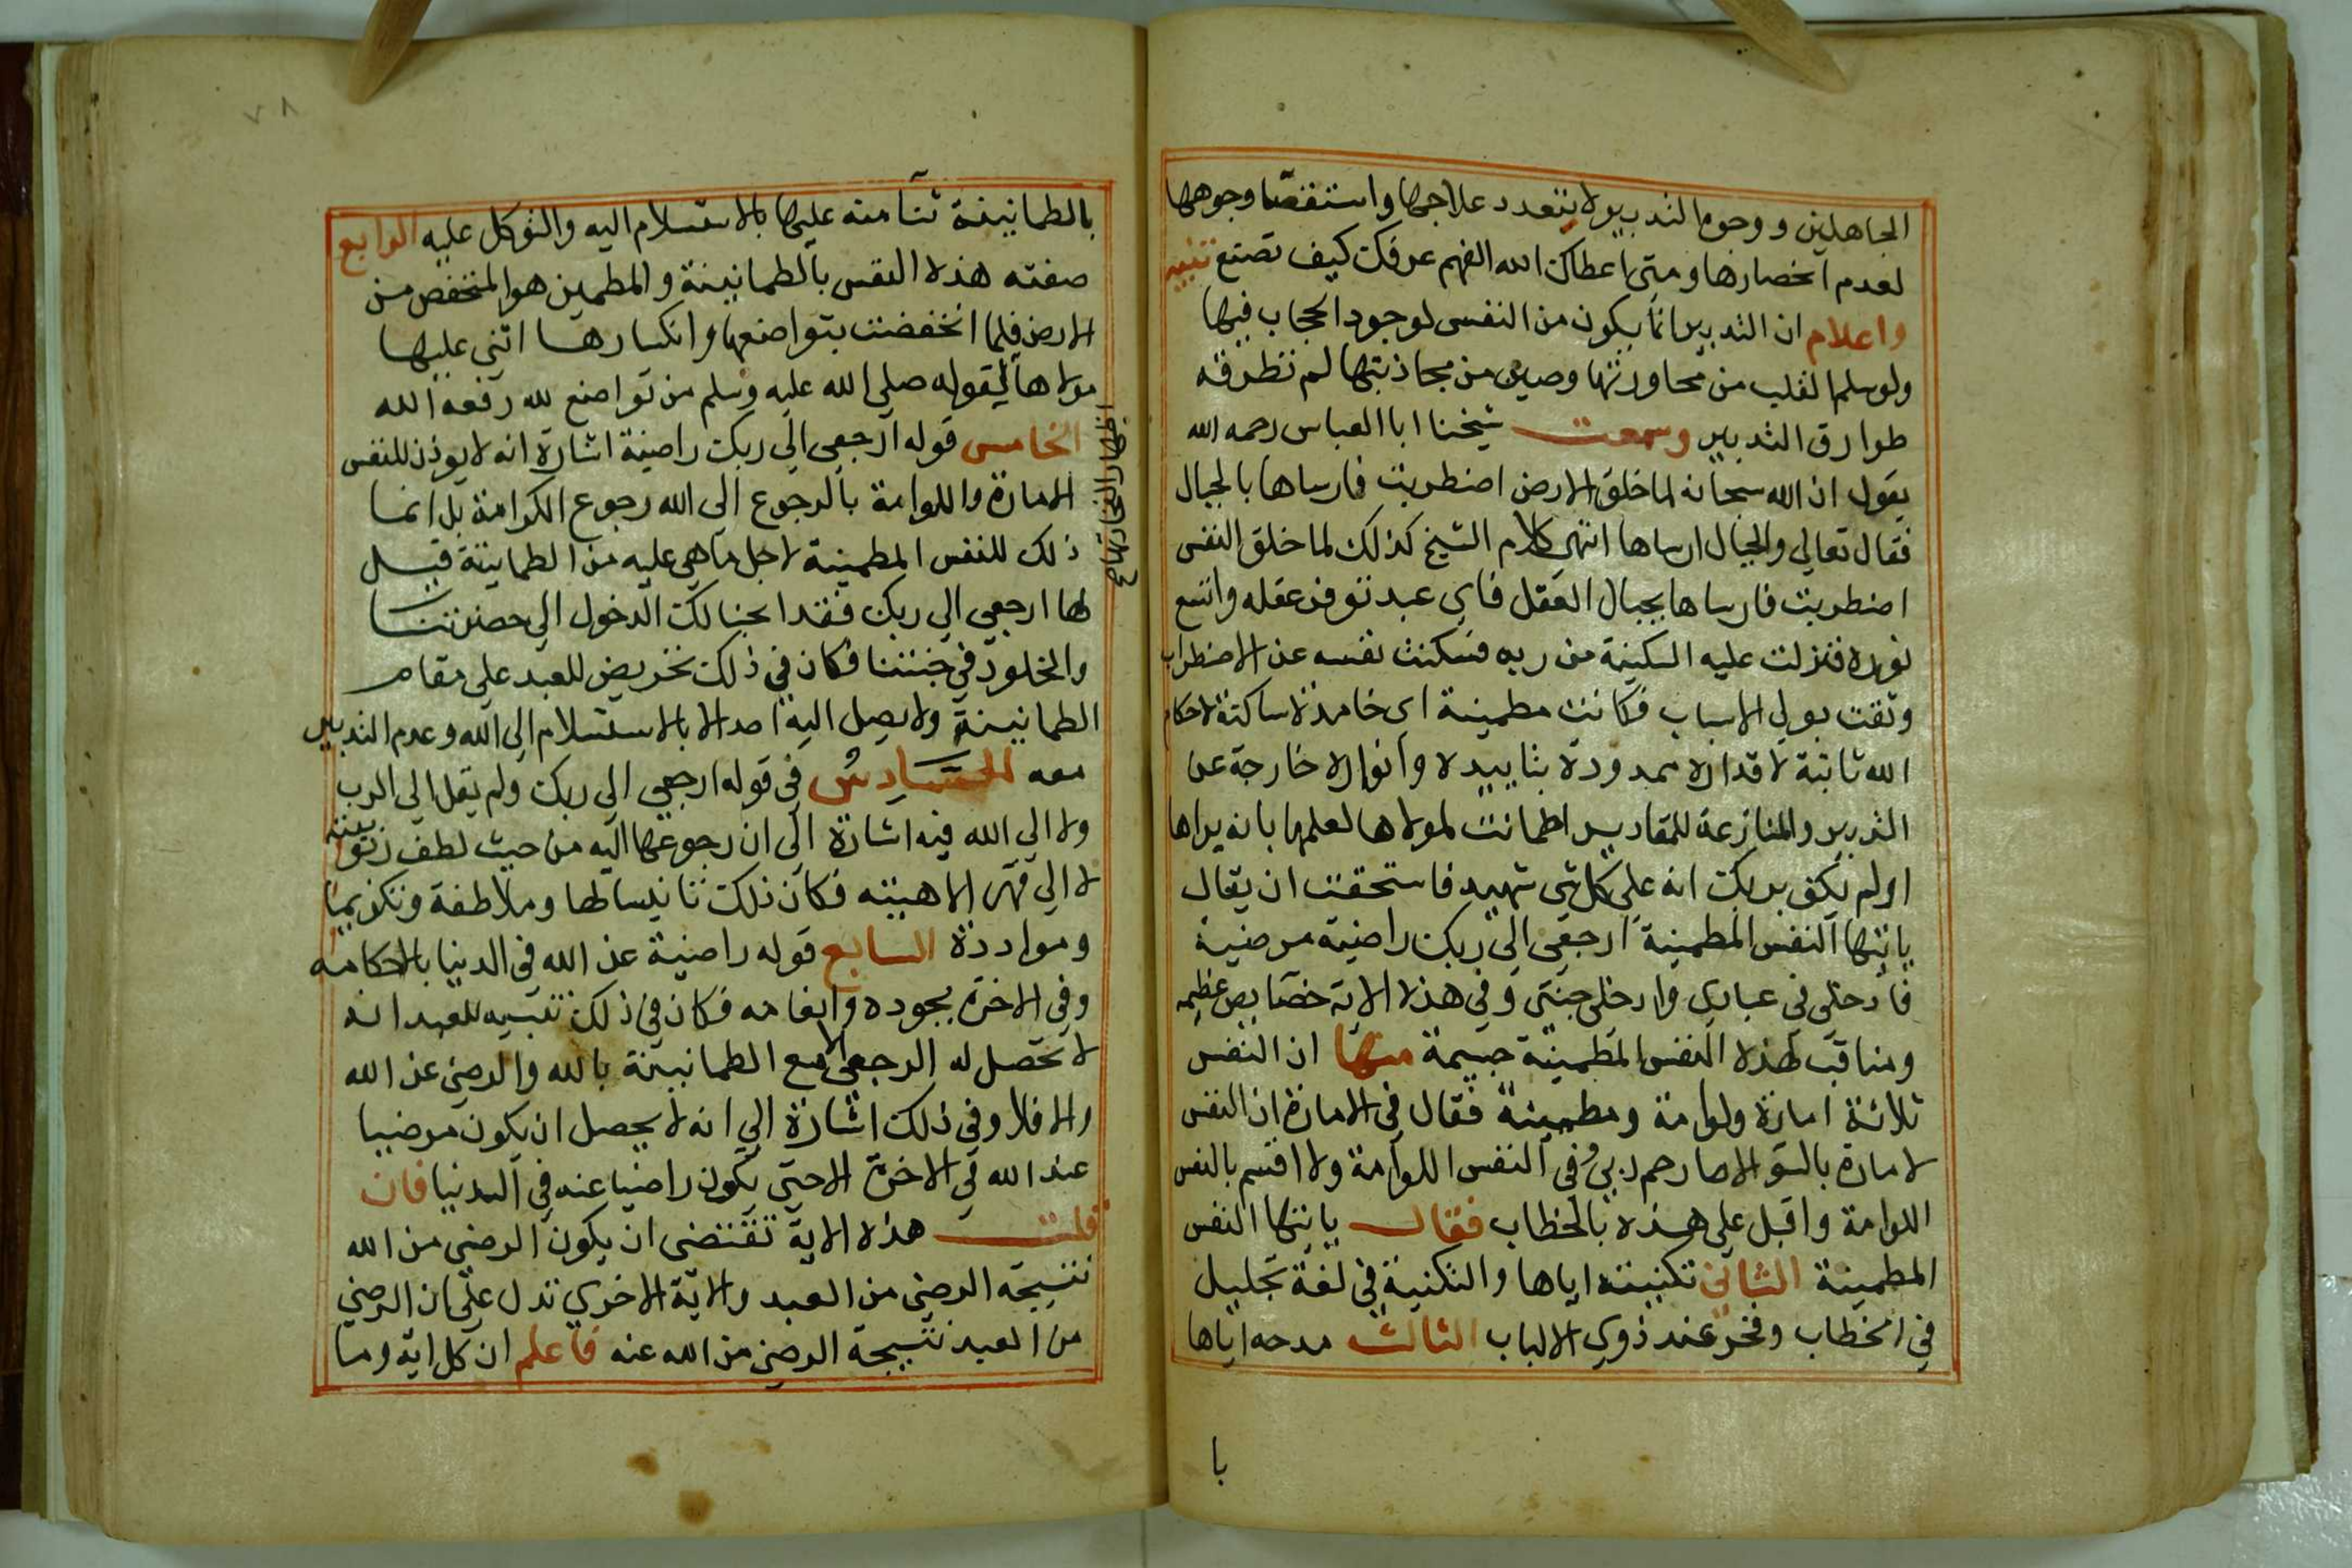 الجاهلين ووجوه التدبير لا يتعدد علاجها واستقصا وجوهها
لعدم انحصارها ومتى اعطاك الله الفهم عرفك كيف تصنع تنبيه
واعلام ان التدبير انما يكون من النفس لوجود الحجاب فيها
ولو سلم القلب من محاورتها وصين من مجاذبتها لم تطرقه
طوارق التدبير وسمعت شيخنا ابا العباس رحمه الله
يقول ان الله سبحانه لما خلق الارض اضطربت فارساها بالجبال
فقال تعالى والجبال ارساها انتهى كلام الشيخ كذلك لما خلق النفس
اضطربت فارساها بجبال العقل فاي عبد توفر عقله واتسع
نوره فنزلت عليه السكينة من ربه فسكنت نفسه عن الاضطراب
وثقت بولي الاسباب فكانت مطمينة اى خامدة ساكتة لاحكام
الله ثابتة لاقداره ممدودة بتاييده وانواره خارجة عن
التدبير والمنازعة للمقادير اطمانت لمولاها لعلمها بانه يراها
اولم يكف بربك انه على كل شى شهيد فاستحقت ان يقال
يايتها النفس المطمينة ارجعى الى ربك راضية مرضية
فادخلى في عبادي وادخلى جنتى وفي هذه الاية خصايص عظيمه
ومناقب لهذه النفس المطمينة جسيمة منها ان النفس
ثلاثة امارة ولوامة ومطمينة فقال في الامارة ان النفس
لامارة بالسو الا ما رحم ربي وفى النفس اللوامة ولا اقسم بالنفس
اللوامة واقبل على هذه بالخطاب فقال يايتها النفس
المطمينة الثاني تكنيته اياها والتكنية في لغة تجليل
في الخطاب وفخر عند ذوي الالباب الثالث مدحه اياها
با
٧٨
بالطمانينة ثنا منه عليها بالاستسلام اليه والتوكل عليه الرابع
صفته هذه النفس بالطمانينة والمطمين هو المنخفض من
الارض فلما انخفضت بتواضعها وانكسارها اثنى عليها
مولاها لقوله صلى الله عليه وسلم من تواضع لله رفعه الله
الخامس قوله ارجعى الى ربك راضية اشارة انه لا يوذن للنفس
الامارة واللوامة بالرجوع الى الله رجوع الكرامة بل انما
ذلك للنفس المطمينة لاجل ما هى عليه من الطمانينة قيل
لها ارجعى الى ربك فقد ابحنا لك الدخول الى حضرتنا
والخلود في جنتنا فكان في ذلك تحريض للعبد على مقام
الطمانينة ولا يصل اليه احد الا بالاستسلام الى الله وعدم التدبير
معه السادس في قوله ارجعي الى ربك ولم يقل الى الرب
ولا الى الله فيه اشارة الى ان رجوعها اليه من حيث لطف ربوبيته
لا الى قهر الاهيته فكان ذلك تانيسا لها وملاطفة وتكريما
وموادده السابع قوله راضية عن الله في الدنيا باحكامه
وفي الاخرة بجوده وانعامه فكان في ذلك تنبيه للعبد انه
لا تحصل له الرجعى الا مع الطمانينة بالله والرضى عن الله
والا فلا وفي ذلك اشارة الى انه لا يحصل ان يكون مرضيا
عند الله في الاخرة الا حتى يكون راضيا عنه في الدنيا فان
قلت هذه الاية تقتضى ان يكون الرضى من الله
نتيجة الرضى من العبد والاية الاخرى تدل على ان الرضى
من العبد نتيجة الرضى من الله عنه فاعلم ان كل اية وما